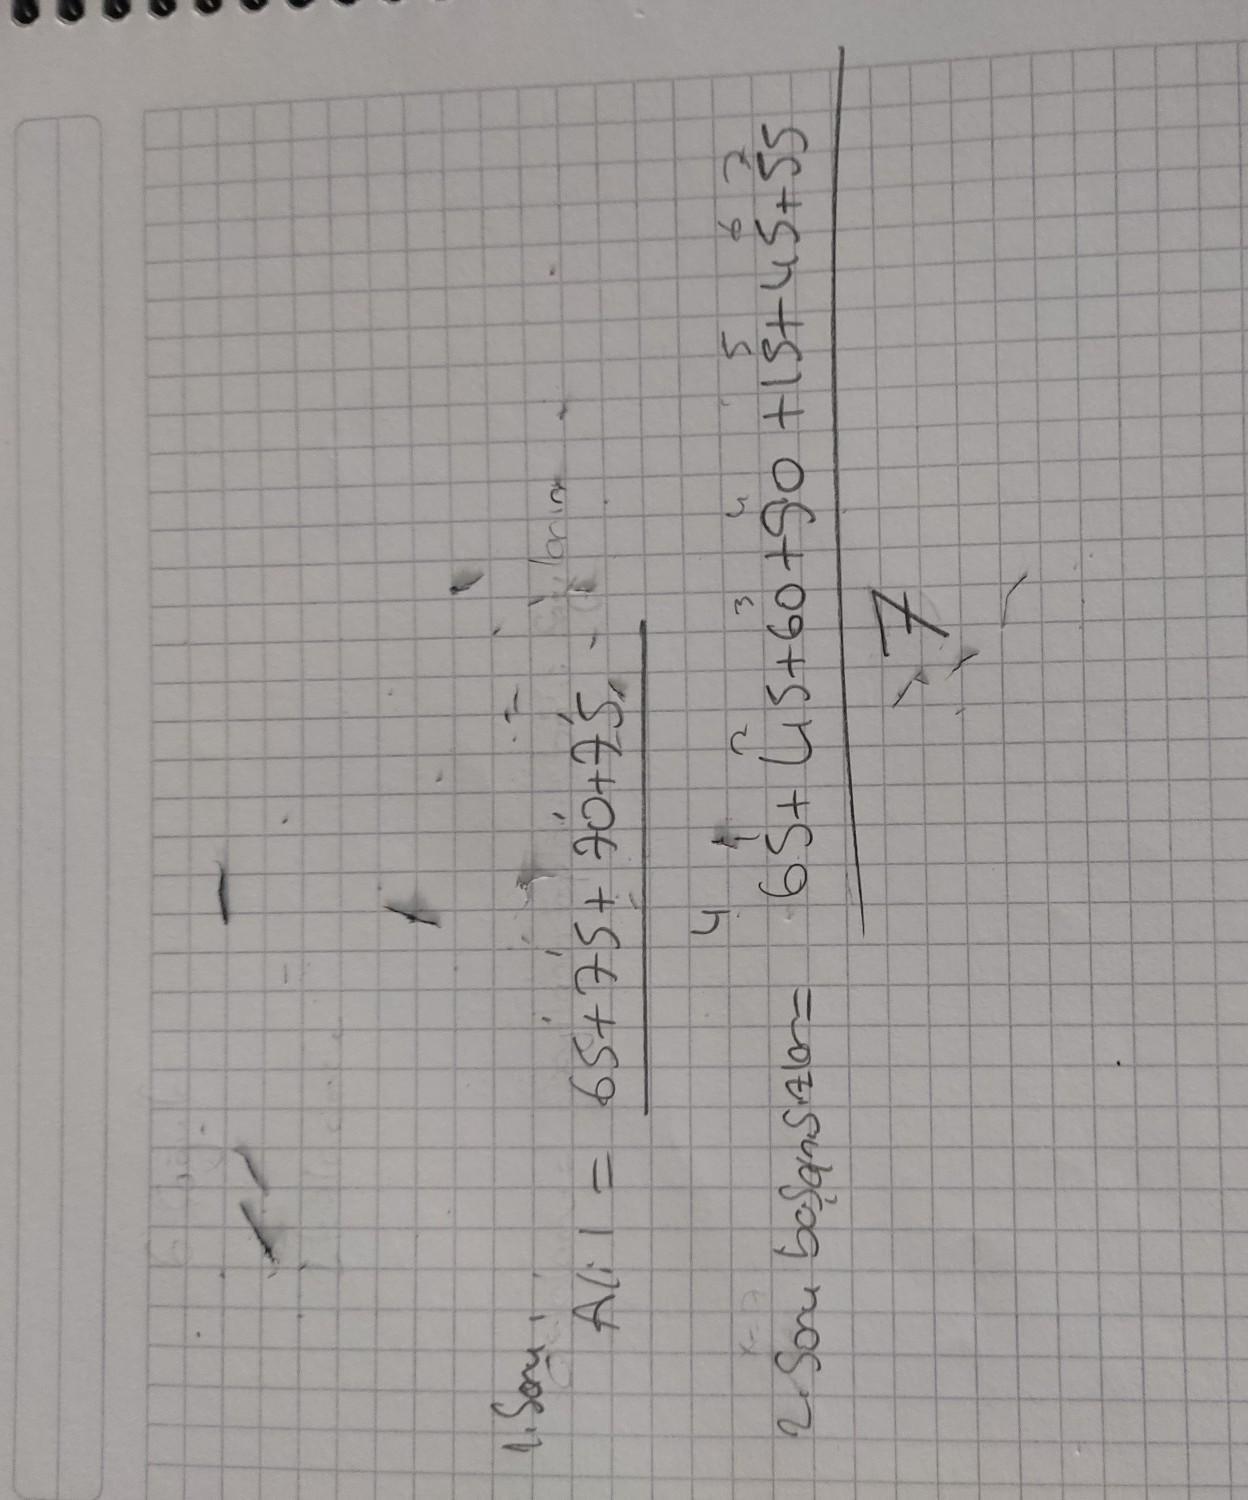 1. Soru
Ali 1 = 65+75+70+75
4
1 2 3 4 5 6 7
2. Soru başarısızlar= 65+45+60+90+15+45+55
7